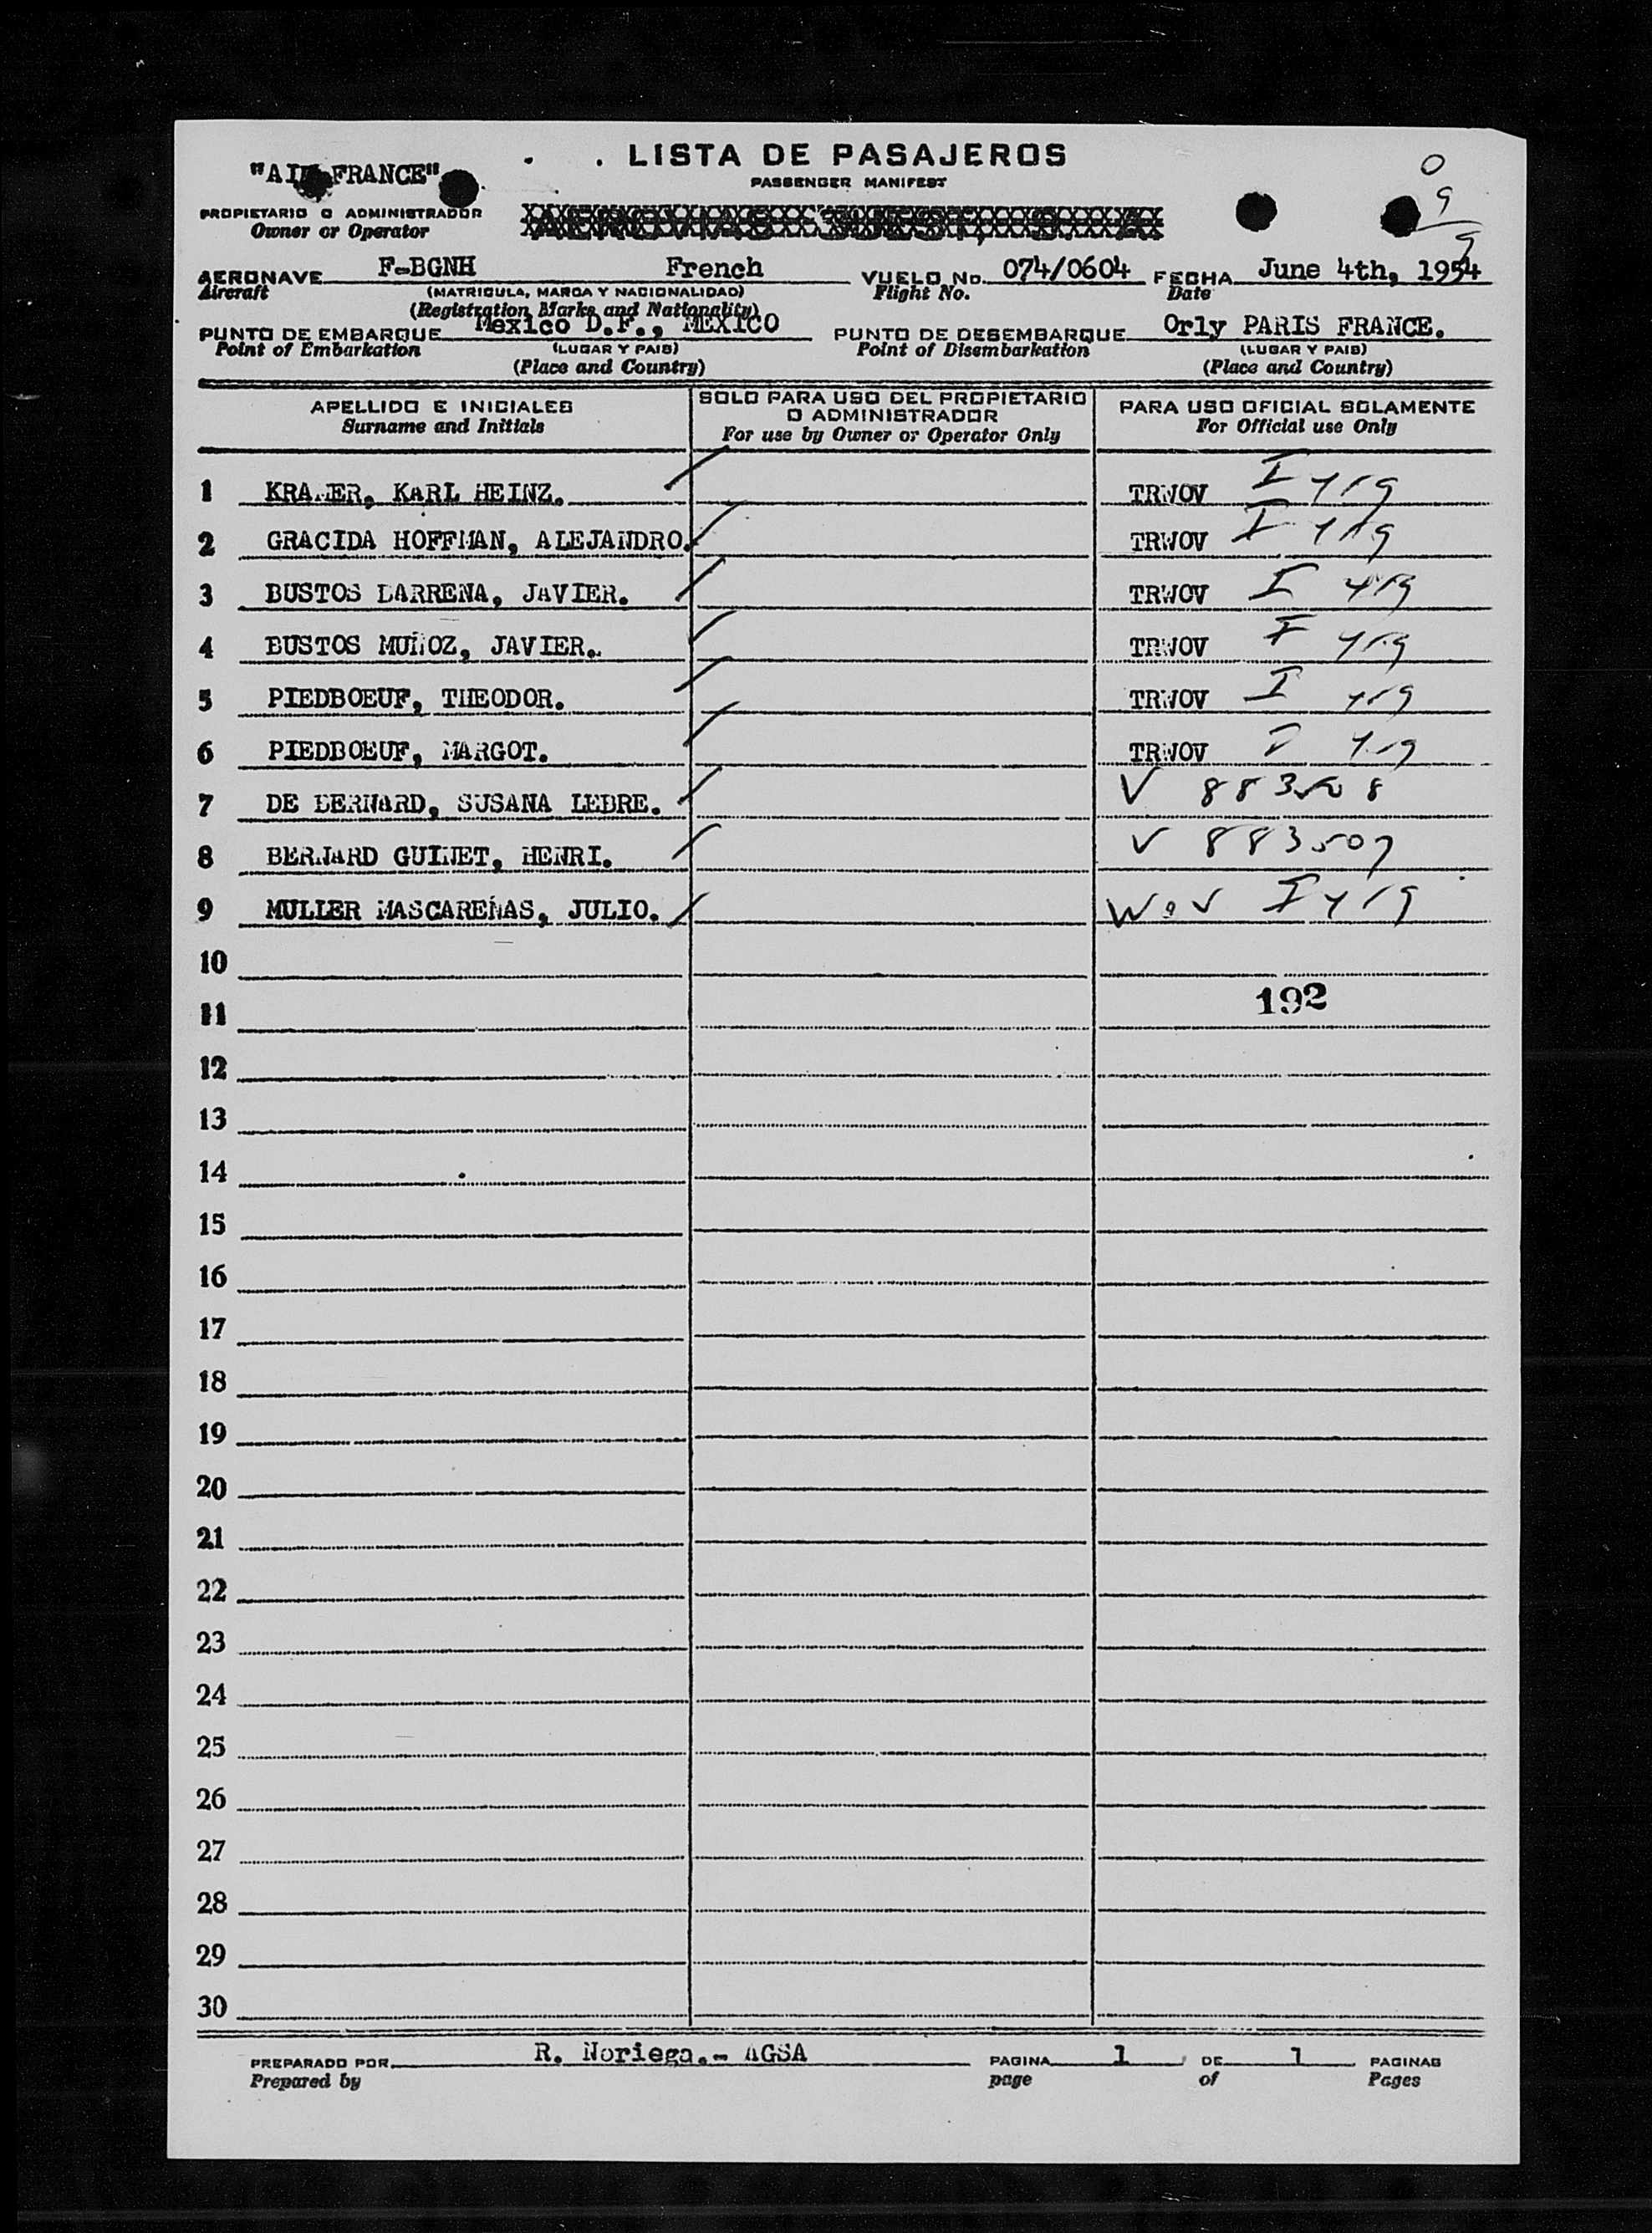 LISTA DE PASAJEROS
PASSENGER MANIFEST
"AIR FRANCE"
PROPIETARIO O ADMINISTRADOR
Owner or Operator
0
9
9
AERONAVE F-BGNH French VUELO No. 074/0604 FECHA June 4th, 1954
Aircraft (MATRICULA, MARCA Y NACIONALIDAD) Flight No. Date
(Registration Marks and Nationality)
PUNTO DE EMBARQUE Mexico D.F., MEXICO PUNTO DE DESEMBARQUE Orly PARIS FRANCE.
Point of Embarkation (LUGAR Y PAIS) Point of Disembarkation (LUGAR Y PAIS)
(Place and Country) (Place and Country)
APELLIDO E INICIALES SOLO PARA USO DEL PROPIETARIO O ADMINISTRADOR PARA USO OFICIAL SOLAMENTE
Surname and Initials For use by Owner or Operator Only For Official use Only
1 KRAMER, KARL HEINZ. TRWOV I
2 GRACIDA HOFFMAN, ALEJANDRO. TRWOV I
3 BUSTOS BARRENA, JAVIER. TRWOV I
4 BUSTOS MUÑOZ, JAVIER. TRWOV I
5 PIEDBOEUF, THEODOR. TRWOV I
6 PIEDBOEUF, MARGOT. TRWOV
7 DE BERNARD, SUSANA LEBRE. V 883508
8 BERNARD GUINET, HENRI. V 883507
9 MULLER MASCAREÑAS, JULIO. WOV I
10
192
11
12
13
14
15
16
17
18
19
20
21
22
23
24
25
26
27
28
29
30
PREPARADO POR R. Noriega.- AGSA PAGINA 1 DE 1 PAGINAS
Prepared by page of Pages